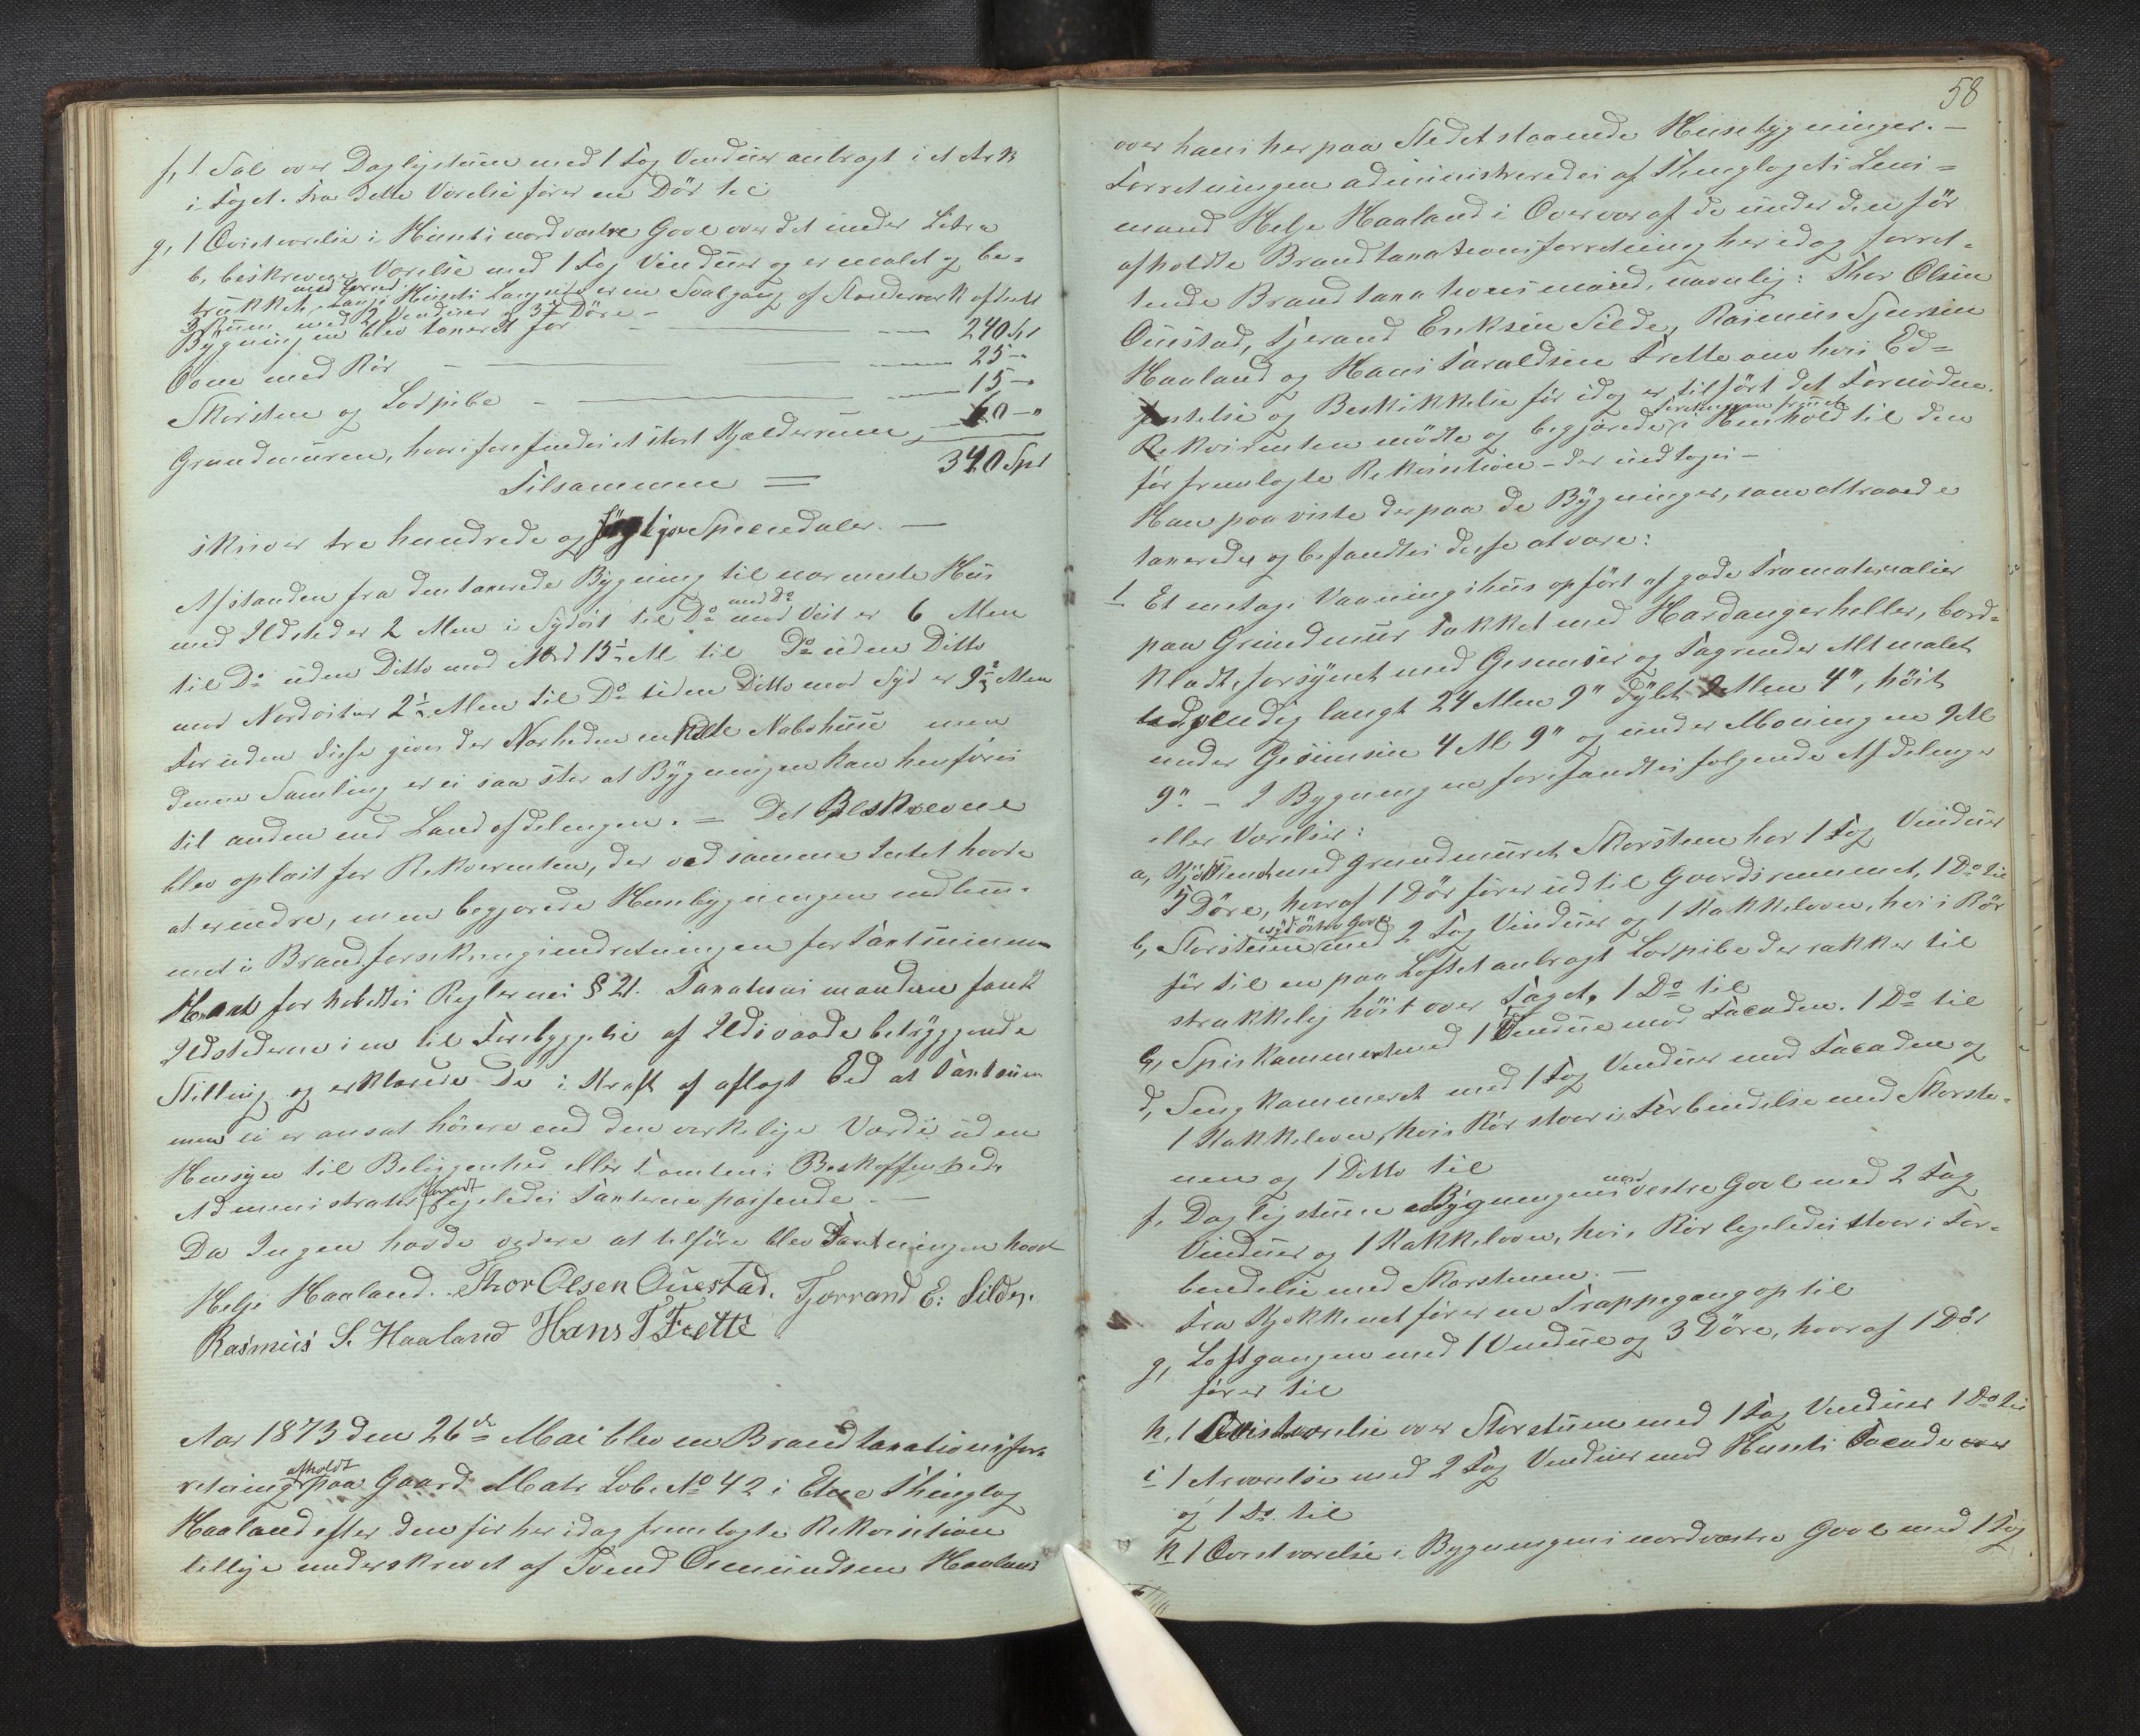 f, 1 Sal over Dagligstuen med 1 Fag Vinduer anbragt i et Ark
i Taget. Fra dette Værelse fører en Dør til
g, 1 Qvistværelse i Husets nordvestre Gavl over det under Litra
b, beskrevne Værelse med 1 Fag Vinduer og er malet og be-
trukket. Langs Husets Langside er en Svalgang af Stænderverk afdelt
med Bord
3 Rum med 2 Vinduer og 3 Døre -
Bygningen blev taxeret for 240 Spd
Ovne med Rør 25 -"
Skorsten og Lodpibe 15 -"
Grundmuren, hvori forefindes et stort Kjælderrum 60 -"
Tilsammen = 340 Spd
skriver tre hundrede og førtigve Speciedaler. -
Afstanden fra den taxerede Bygning til nærmeste Hus
med Ildsteder 2 Alen i Sydøst til Do med Do mod Vest er 6 Alen
til Do uden Ditto mod Nord 13½ Al til Do uden Ditto
mod Nordost er 2½ Alen til Do uden Ditto mod Syd er 9½ Alen
For uden disse gives der Nærheden enkelte Nabohuse men
denne Samling er ei saa stor at Bygningen kan henføres
til anden end Landafdelingen. - Det Beskrevne
blev oplæst for Rekvirenten, der ved samme Intet havde
at erindre, men begjærede Husebygningen indlem-
met i Brandforsikringsindretningen for Taxtsummen
Han forholdtes Reglernes § 21. Taxationsmændene fandt
Ildstederne i en til Forebyggelse af Ildsvaade betryggende
Stilling og erklærede De i Kraft af aflagt Ed at Taxtsum
men ei er ansat høiere end den verkelige Værdi uden
Hensyn til Beliggenhed eller Tomtens Beskaffenhed.
Administrator fandt ligeledes Taxterne passende -
Da Ingen havde videre at tilføre blev Forretningen hævet
Helje Haaland. Thor Olsen Õuestad. Tjerrand E: Silde.
Rasmus S. Haaland Hans T Frette
Aar 1873 den 26de Mai blev en Brandtaxationsfor-
retning afholdt paa Gaard Matr Lob. No 42 i Etne Thinglag
Haaland efter den før her idag fremlagte Rekvisition
tillige underskrevet af Svend Osmundsen Haaland
58
over hans her paa Stedet staaende Husebygninger. -
Forretningen administreredes af Thinglagets Lens-
mand Helje Haaland i Overvær af de under den før
afholdte Brandtaxationsforretning her idag forret-
tende Brandtaxationsmænd, navnlig: Thor Olsen
Õuestad, Tjerand Eriksen Silde, Rasmus Sjursen
Haaland og Hans Taraldsen Frette om hvis Ed-
fæstelse og Beskikkelse før idag er tilført det Fornødne.
Rekvirenten mødte og begjærede Forretningen fremmet i Henhold til den
før fremlagte Rekvisition - der indtages -
Han paaviste derpaa de Bygninger, som attraaede
taxeredes og befandtes disse at være:
1 Et enetages Vaaningshus opført af gode Træmaterialier
paa Grundmur Takket med Hardangerheller, bord-
klædt, forsynet med Gesimser og Tagrender Alt malet
udvendig langt 24 Alen 9" dybt 9 Alen 4", høit
under Gesimsen 4 Al 9" og under Mønningen 9 Al
9". - I Bygningen forefandtes følgende Afdelinger
eller Værelser:
a, Kjøkkenet med grundmuret Skorsten har 1 Fag Vinduer
5 Døre, hvoraf 1 Dør fører ud til Gaardsrummet, 1 Do til
b, Storstuen i sydøstre Gavl med 2 Fag Vinduer og 1 Kakkelovn, hvis Rør
før til en paa Loftet anbragt Lodpibe der rækker til
strækkelig høit over Taget, 1 Do til
c, Spiskammeret med 1 Vindue mod Facaden. 1 Do til
d, Sengkammeret med 1 Fag Vinduer mod Facaden og
1 Kakkelovn, hvis Rør staar i Forbindelse med Skorste-
nen og 1 Ditto til
f, Dagligstuen i Bygningens nordvestre Gavl med 2 Fag
Vinduer og 1 Kakkelovn, hvis Rør ligeledes staar i For-
bindelse med Skorstenen. -
Fra Kjøkkenet fører en Trappegang op til
g, Loftgangen med 1 Vindue og 3 Døre, hvoraf 1 Dør
fører til
h, 1 Qvistværelse over Storstuen med 1 Fag Vinduer 1 Do til
i 1 Arværelse med 2 Fag Vinduer mod Husets Facade
og 1 Do. til
k 1 Qvistværelse i Bygningens nordvestre Gavl med 1 Fag